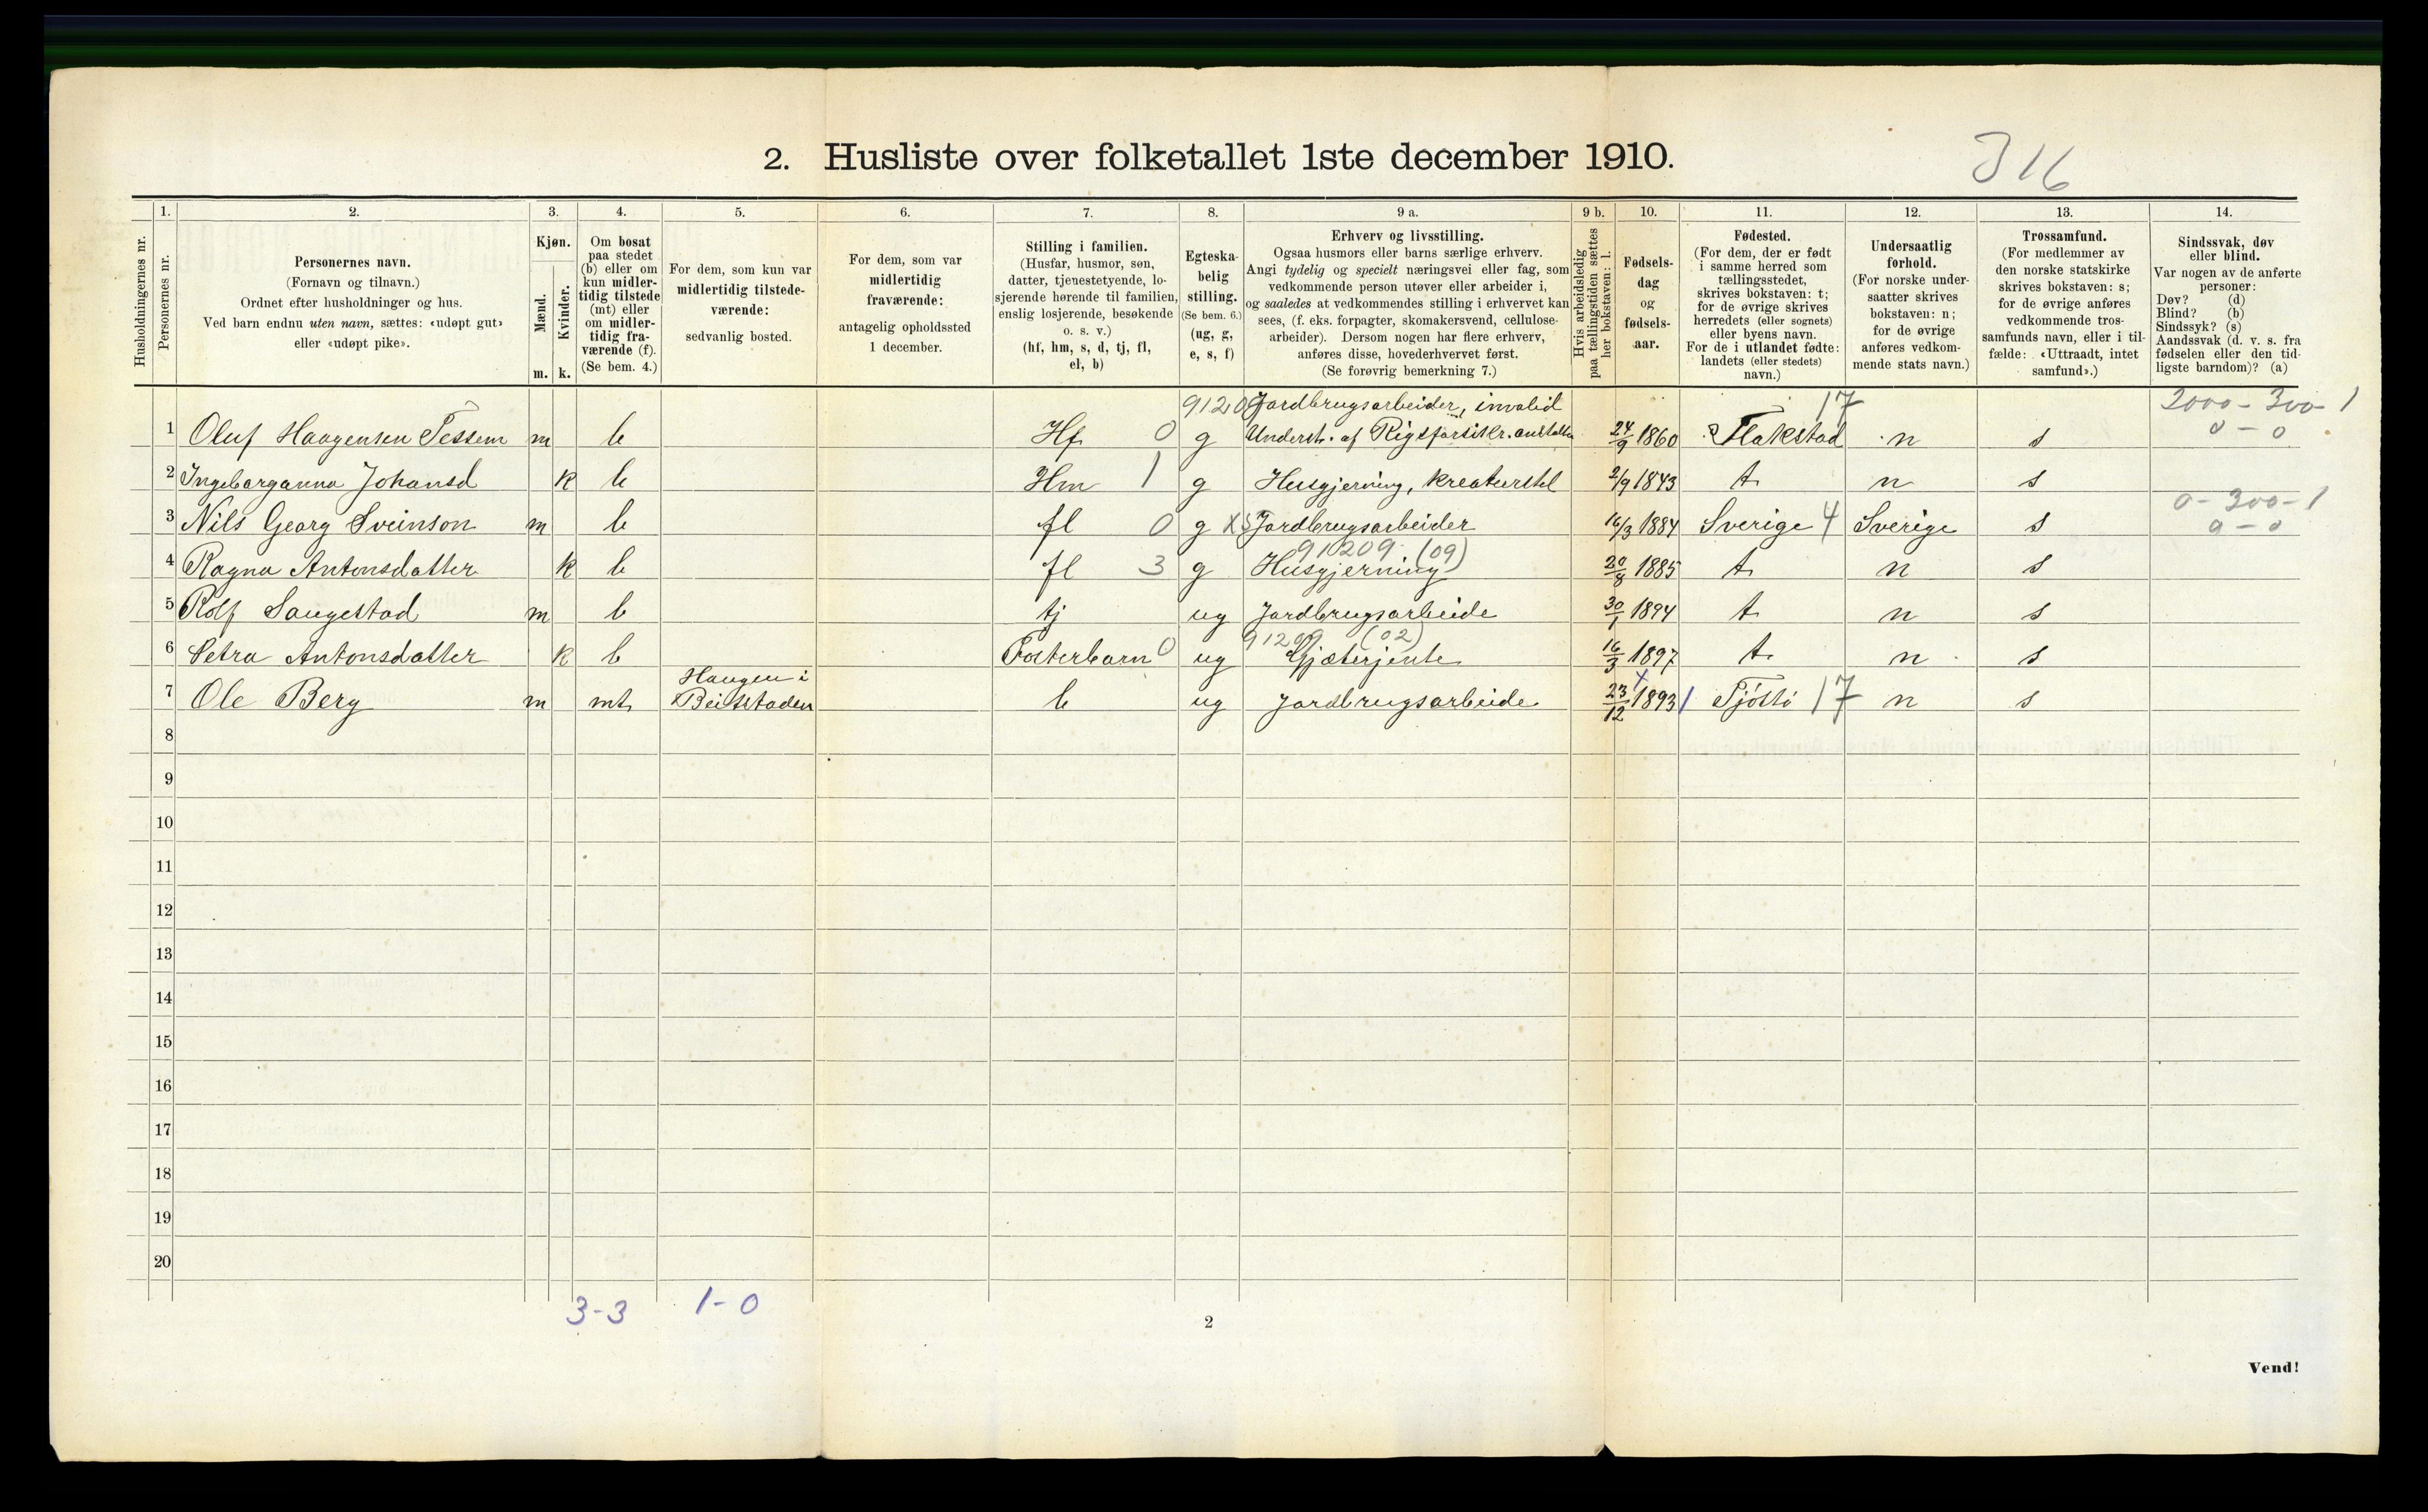 2. Husliste over folketallet 1ste december 1910.
316
Husholdningernes nr.
1.
Personernes nr.
2.
Personernes navn.
(Fornavn og tilnavn.)
Ordnet efter husholdninger og hus.
Ved barn endnu uten navn, sættes: «udøpt gut»
eller «udøpt pike».
3.
Kjøn.
Mænd.
Kvinder.
m. k.
4.
Om bosat
paa stedet
(b) eller om
kun midler-
tidig tilstede
(mt) eller
om midler-
tidig fra-
værende (f).
(Se bem. 4.)
5.
For dem, som kun var
midlertidig tilstede-
værende:
sedvanlig bosted.
6.
For dem, som var
midlertidig
fraværende:
antagelig opholdssted
1 december.
7.
Stilling i familien.
(Husfar, husmor, søn,
datter, tjenestetyende, lo-
sjerende hørende til familien,
enslig losjerende, besøkende
o. s. v.)
(hf, hm, s, d, tj, fl,
el, b)
8.
Egteska-
belig
stilling.
(Se bem. 6.)
(ug, g,
e, s, f)
9 a.
Erhverv og livsstilling.
Ogsaa husmors eller barns særlige erhverv.
Angi tydelig og specielt næringsvei eller fag, som
vedkommende person utøver eller arbeider i,
og saaledes at vedkommendes stilling i erhvervet kan
sees, (f. eks. forpagter, skomakersvend, cellulose-
arbeider). Dersom nogen har flere erhverv,
anføres disse, hovederhvervet først.
(Se forøvrig bemerkning 7.)
9 b.
Hvis arbeidsledig
paa tællingstiden sættes
her bokstaven: l.
10.
Fødsels-
dag
og
fødsels-
aar.
11.
Fødested.
(For dem, der er født
i samme herred som
tællingsstedet,
skrives bokstaven: t;
for de øvrige skrives
herredets (eller sognets)
eller byens navn.
For de i utlandet fødte:
landets (eller stedets)
navn.)
12.
Undersaatlig
forhold.
(For norske under-
saatter skrives
bokstaven: n;
for de øvrige
anføres vedkom-
mende stats navn.)
13.
Trossamfund.
(For medlemmer av
den norske statskirke
skrives bokstaven: s;
for de øvrige anføres
vedkommende tros-
samfunds navn, eller i til-
fælde: «Uttraadt, intet
samfund».)
14.
Sindssvak, døv
eller blind.
Var nogen av de anførte
personer:
Døv? (d)
Blind? (b)
Sindssyk? (s)
Aandssvak (d. v. s. fra
fødselen eller den tid-
ligste barndom)? (a)
91209 Jordbrugsarbeider, invalid 17 2000-300-1
1 Oluf Haagensen Tessem m b Hf 0 g Underst. af Rigsforsikr. anstalten 24/9 1860 Flakstad n s 0-0
2 Ingeborganna Johansd k b Hm 1 g Husgjerning, kreaturstel 2/9 1843 t n s
0-300-1
3 Nils Georg Sveinson m b fl 0 g Jordbrugsarbeider 16/3 1884 Sverige 4 Sverige s 0-0
91209 (09)
4 Ragna Antonsdatter k b fl 3 g Husgjerning 20/8 1885 t n s
5 Rolf Saugestad m b tj ug Jordbrugsarbeide 30/1 1894 t n s
91209 (02)
6 Petra Antonsdatter k b Fosterbarn 0 ug Gjæterjente 16/3 1897 t n s
Haugen i
7 Ole Berg m mt Beitstaden b ug Jordbrugsarbeide 23/12 1893 Tjøttø 17 n s
8
9
10
11
12
13
14
15
16
17
18
19
20
3-3 1-0
2
Vend!